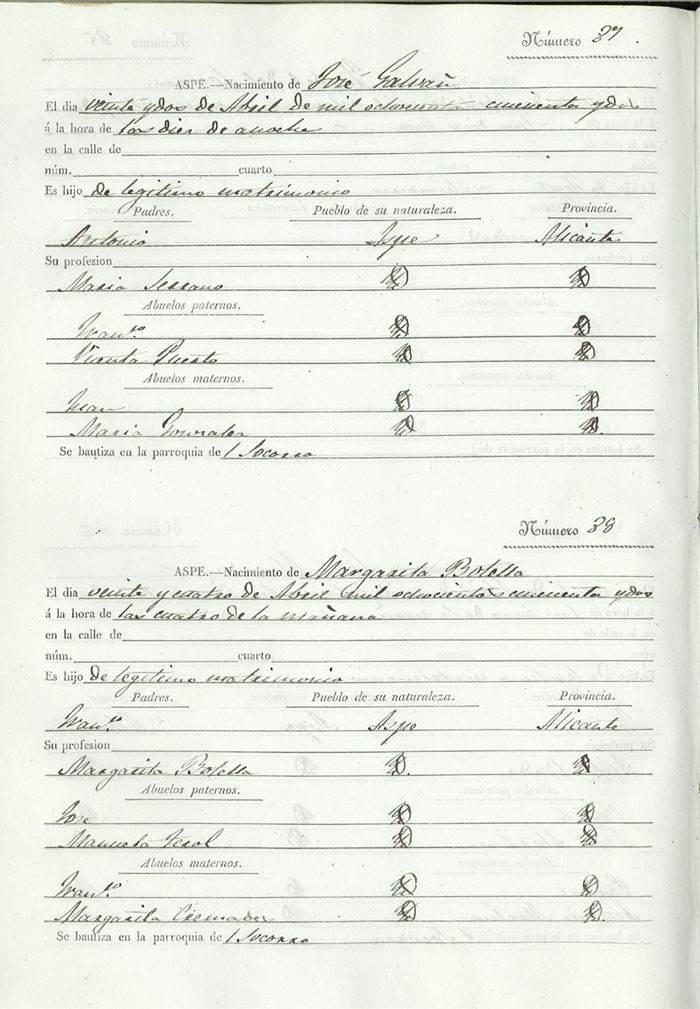 Número 37.
ASPE.—Nacimiento de José Galvañ
El dia veinte ydos de Abril de mil ochocientos cincuenta ydos
á la hora de las diez de anoche
en la calle de
núm. cuarto
Es hijo de legitimo matrimonio
Padres. Pueblo de su naturaleza. Provincia.
Antonio Aspe Alicante
Su profesion
Maria Serrano
Abuelos paternos.
Fran.co
Vicenta Puerto
Abuelos maternos.
Juan
Maria Gonzalez
Se bautiza en la parroquia de / Socorro
Número 38
ASPE.—Nacimiento de Margarita Botella
El dia veinte y cuatro de Abril mil ochocientos cincuenta ydos
á la hora de las cuatro de la mañana
en la calle de
núm. cuarto
Es hijo de legitimo matrimonio
Padres. Pueblo de su naturaleza. Provincia.
Fran.co Aspe Alicante
Su profesion
Margarita Botella
Abuelos paternos.
Jose
Manuela
Abuelos maternos.
Fran.co
Margarita Cremades
Se bautiza en la parroquia de / Socorro